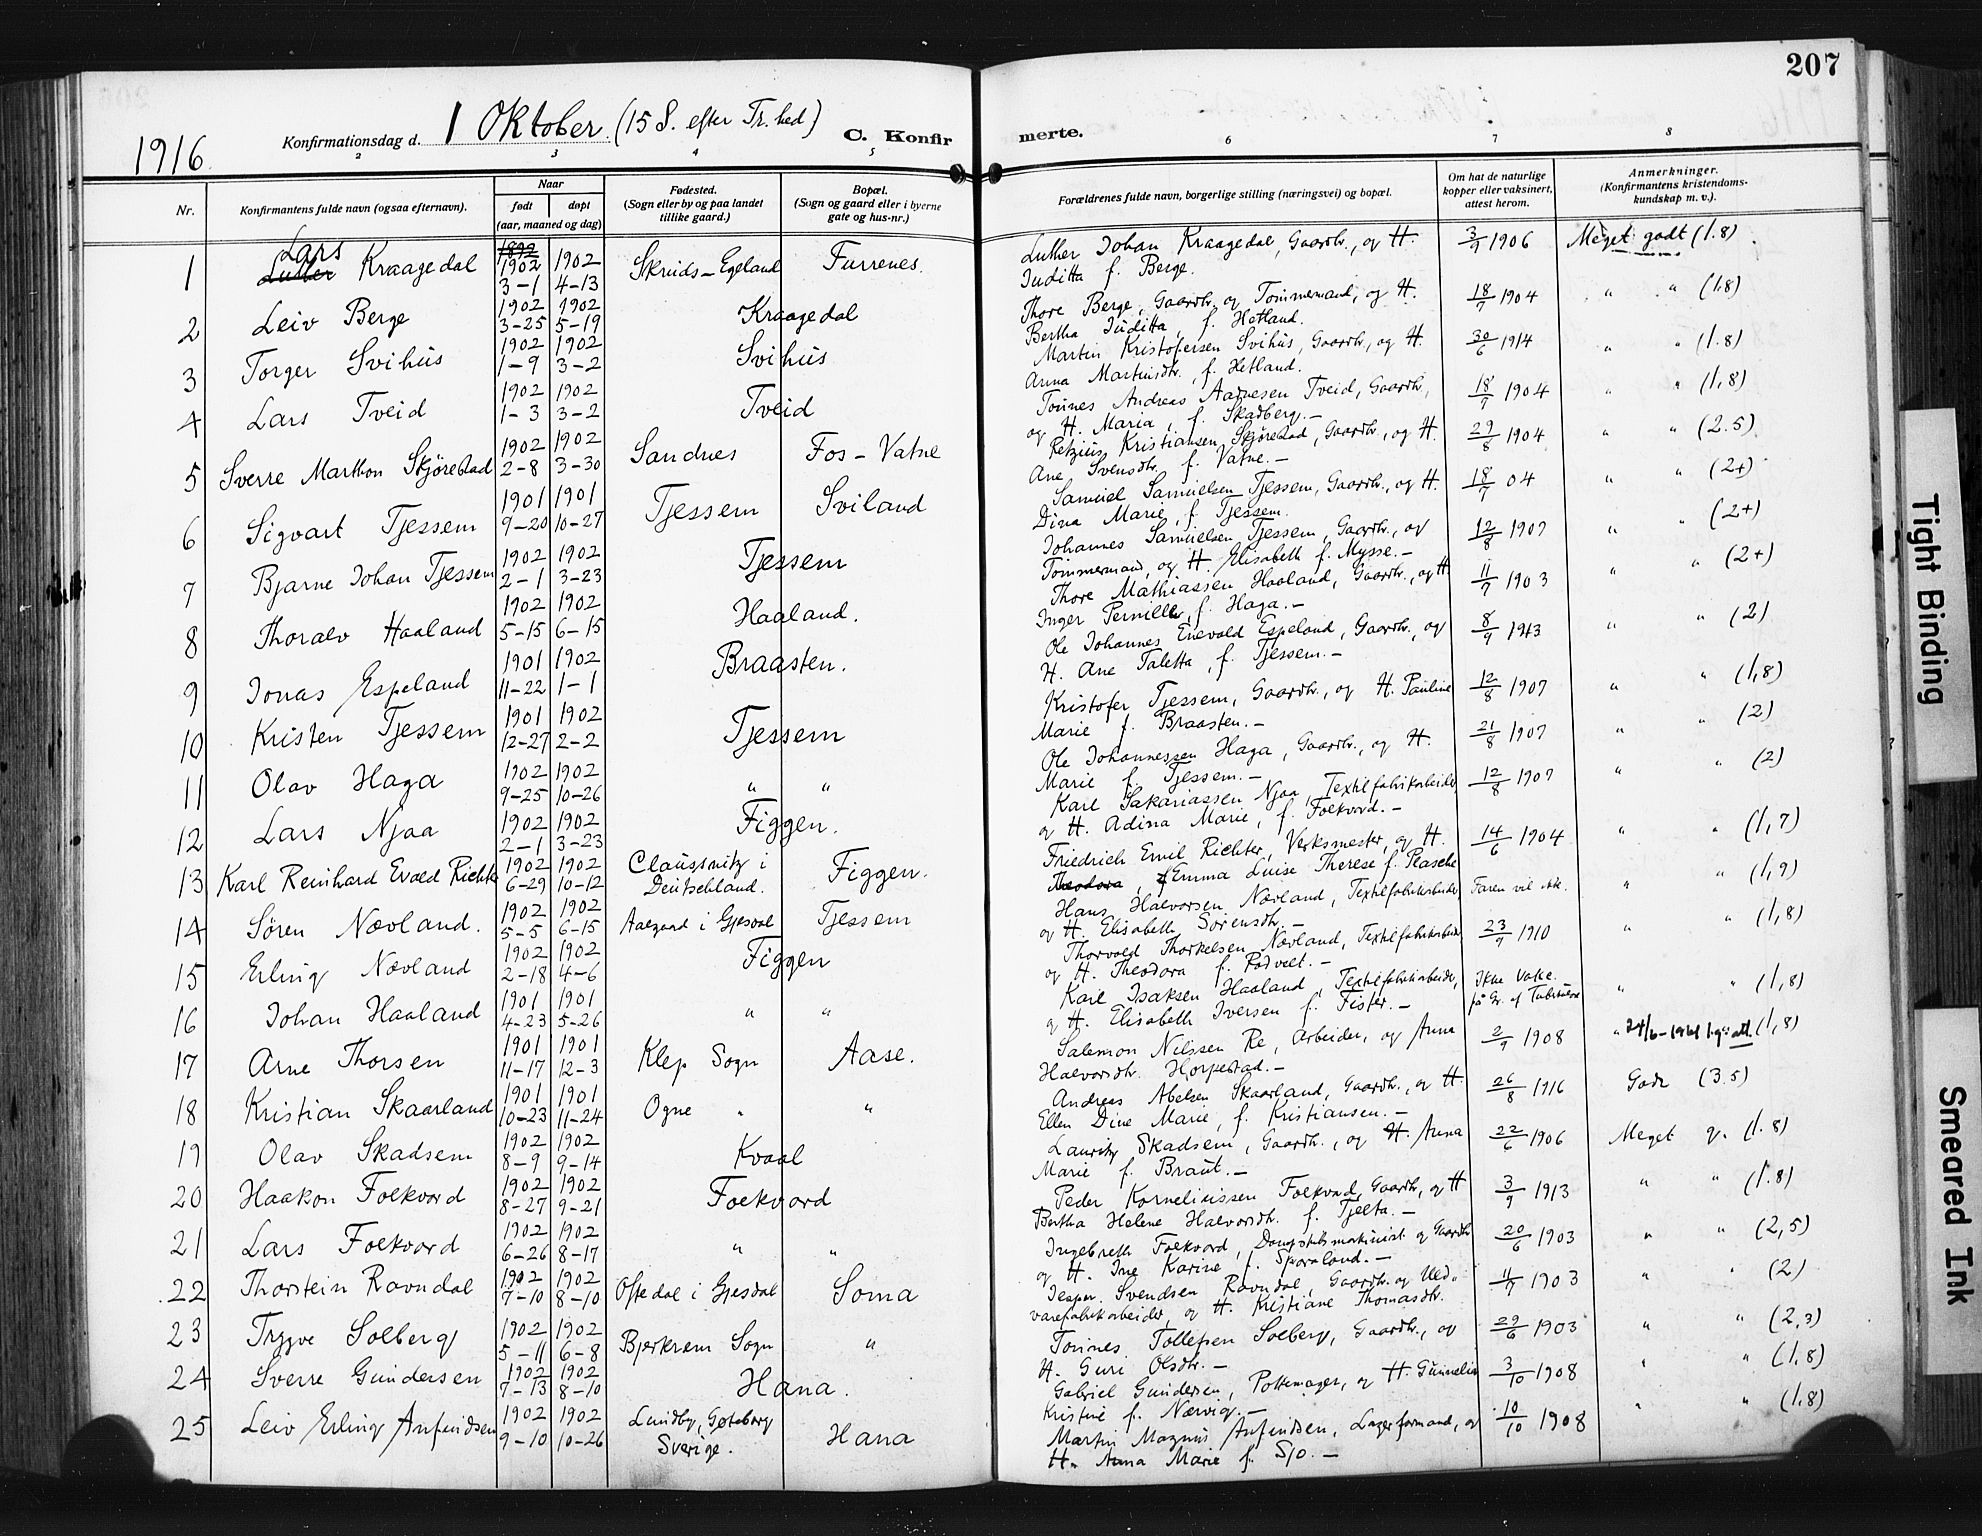 207
1916
Konfirmationsdag d. 1 Oktober. (15 S. efter Tr.hed)
C. Konfirmerte.
2 3 4 5 6 7 8
Nr.
Konfirmantens fulde navn (ogsaa efternavn).
Naar
født døpt
(aar, maaned og dag)
Fødested.
(Sogn eller by og paa landet
tillike gaard.)
Bopæl.
(Sogn og gaard eller i byerne
gate og hus-nr.)
Forældrenes fulde navn, borgerlige stilling (næringsvei) og bopæl.
Om hat de naturlige
kopper eller vaksinert,
attest herom.
Anmerkninger.
(Konfirmantens kristendoms-
kundskap m. v.).
1 Lars Luther Kraagedal 1892 1902 3-1 1902 4-13 Skruds-Egeland Furrenes.
Luther Johan Kraagedal, Gaardbr., og H. Juditta f. Berge. 3/9 1906 Meget godt (1.8)
2 Leiv Berge 1902 3-25 1902 5-19 Kraagedal
Thore Berge, Gaardbr. og Tømmermand, og H. Bertha Juditta, f. Hetland. 18/7 1904 " " (1.8)
3 Torger Svihus 1902 1-9 1902 3-2 Svihus
Martin Kristofersen Svihus, Gaardbr., og H. Anna Martinsdtr. f. Hetland. 30/6 1914 " " (1.8)
4 Lars Tveid 1902 1-3 1902 3-2 Tveid
Tønnes Andreas Aadnesen Tveid, Gaardbr., og H. Maria, f. Skadberg.- 18/7 1904 " " (1,8)
5 Sverre Marthon Skjørestad 1902 2-8 1902 3-30 Sandnes Fos-Vatne
Retzius Kristiansen Skjørestad, Gaardbr., og H. Ane Svensdtr. f. Vatne.- 29/8 1904 " " (2.5)
6 Sigvart Tjessem 1901 9-20 1901 10-27 Tjessem Sviland
Samuel Samuelsen Tjessem, Gaardbr., og H. Dina Marie, f. Tjessem. 18/7 04 " " (2+)
7 Bjarne Johan Tjessem 1902 2-1 1902 3-23 Tjessem
Johannes Samuelsen Tjessem, Gaardbr., og Tømmermand, og H. Elisabeth f. Mysse.- 12/8 1907 " " (2+)
8 Thoralv Haaland 1902 5-15 1902 6-15 Haaland.
Thore Mathiassen Haaland, Gaardbr., og H. Inger Pernille, f. Haga.- 11/7 1903 " " (2+)
9 Jonas Espeland 1901 11-22 1902 1-1 Braasten.
Ole Johannes Enevald Espeland, Gaardbr., og H. Ane Taletta, f. Tjessem.- 8/9 1913 " " (2)
10 Kristen Tjessem 1901 12-27 1902 2-2 Tjessem
Kristofer Tjessem, Gaardbr., og H. Pauline Marie f. Braasten.- 12/8 1907 " " (1,8)
11 Olav Haga 1902 9-25 1902 10-26 " "
Ole Johannessen Haga, Gaardbr., og H. Marie f. Tjessem.- 21/8 1907 " " (2)
12 Lars Njaa 1902 2-1 1902 3-23 Figgen.
Karl Sakariassen Njaa, Textilfabrikarbeider og H. Adina Marie, f. Folkvord.- 12/8 1907 " " (2)
13 Karl Reinhard Evald Richter 1902 6-29 1902 10-12 Claussnitz i Deutschland. Figgen.
Friedrich Emil Richter, Verksmester, og H. Theodora, Emma Luise Therese f. Plasche 14/6 1904 " " (1,7)
14 Søren Nævland. 1902 5-5 1902 6-15 Aalgaard i Gjesdal Tjessem
Hans Halvorsen Nævland, Textilfabrikarbeider, og H. Elisabeth Sørensdtr.- Faren vil ikke. " " (1,9)
15 Erling Nævland 1902 2-18 1902 4-6 Figgen
Thorvald Thorkelsen Nævland, Textilfabrikarbeider, og H. Theodora f. Rødvelt.- 23/9 1910 " " (1,8)
16 Johan Haaland 1901 4-23 1901 5-26 " "
Karl Isaksen Haaland, Textilfabrikarbeider, og H. Elisabeth Iversen f. Fister.- Ikke vakc. på Gr. af Tuberkulose " " (1,8)
17 Arne Thorsen 1901 11-17 1901 12-3 Klep Sogn Aase.
Salemon Nilssen Re, Arbeider, og Anna Halvorsdtr. Horpestad.- 2/9 1908 " 24/6-1961 (1,8)
18 Kristian Skaarland 1901 10-23 1901 11-24 Ogne " "
Andreas Abelsen Skaarland, Gaardbr., og H. Ellen Dine Marie, f. Kristiansen.- 26/8 1916 Godt (3.5)
19 Olav Skadsem 1902 8-9 1902 9-14 Kvaal
Lauritz Skadsem, Gaardbr., og H. Anna Marie f. Braut.- 22/6 1906 Meget g. (1.8)
20 Haakon Folkvord 1902 8-27 1902 9-21 Folkvord
Peder Korneliussen Folkvord, Gaardbr., og H Bertha Helene Halvorsdtr. f. Tjelta.- 3/9 1913 " " (1.8)
21 Lars Folkvord 1902 6-26 1902 8-17 " "
Ingebreth Folkvord, Dampskibsmaskinist og Gaardbr og H. Ine Karine f. Skoraland.- 20/6 1903 " " (2,5)
22 Thorstein Ravndal 1902 7-10 1902 8-10 Oftedal i Gjesdal Soma
Jesper Svendsen Ravndal, Gaardbr. og Uldvarefabrikarbeider, og H. Kristiane Thomasdtr. 11/7 1903 " " (2)
23 Trygve Solberg 1902 5-11 1902 6-8 Bjerkrem Sogn "
Tønnes Tollefsen Solberg, Gaardbr., og H. Guri Olsdtr.- 29/6 1903 " " (2,3)
24 Sverre Gundersen 1902 7-13 1902 8-10 Hana.
Gabriel Gundersen, Pottemager, og H. Gunnelia Kristine f. Nærvig.- 3/10 1908 " " (1,8)
25 Leiv Erling Anfindsen 1902 9-10 1902 10-26 Lundby, Gøteborg Sverige. Hana
Martin Magnus Anfindsen, Lagerformand, og H. Anna Marie f. Sjo.- 10/10 1908 " " (1.8)
Tight Binding
Smeared Ink